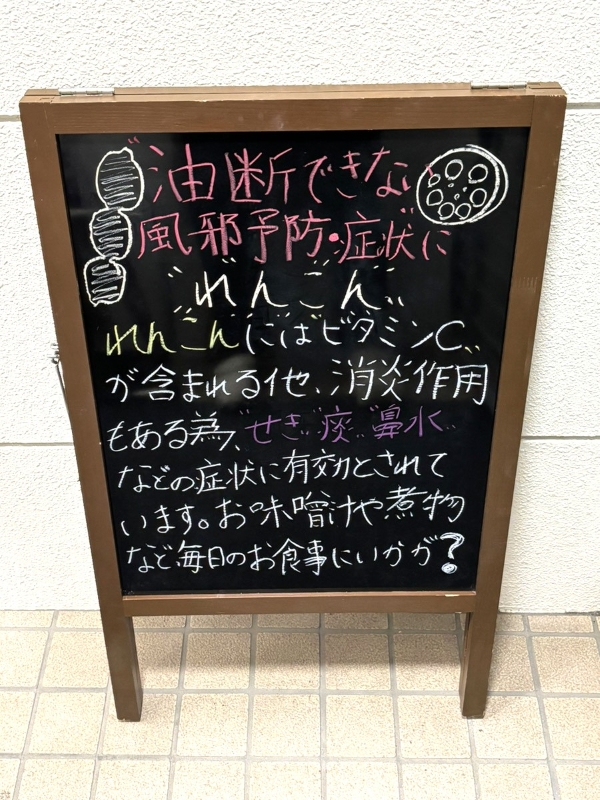 油断できない
風邪予防・症状に
"れんこん"
れんこんにはビタミンC
が含まれる他、消炎作用
もある為、"せき""痰""鼻水"
などの症状に有効とされて
います。お味噌汁や煮物
など毎日のお食事にいかが?